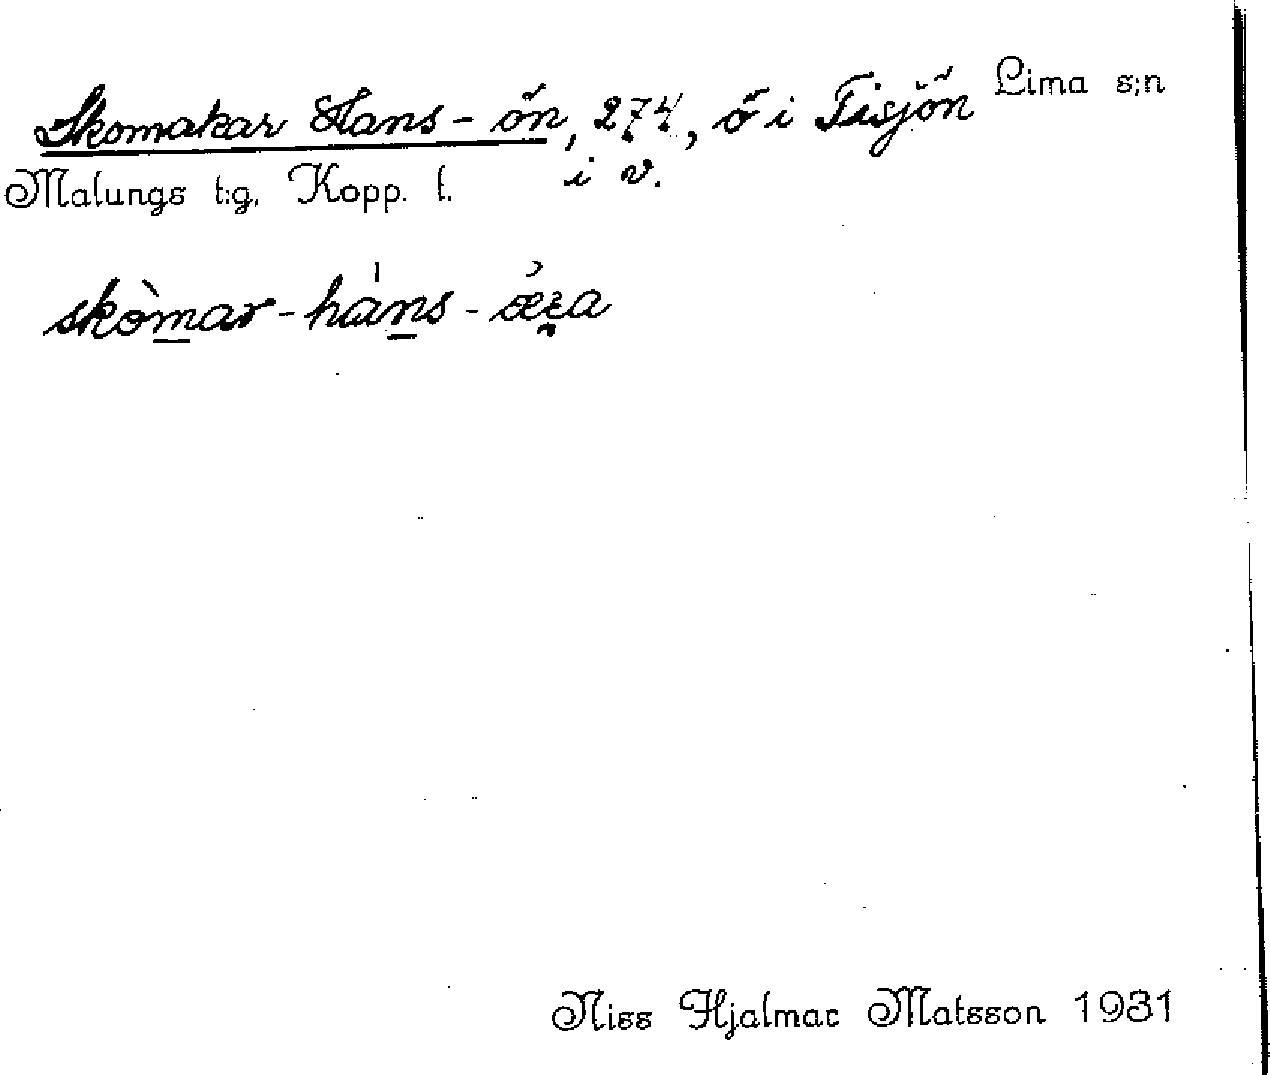 Skomakar Hans-ön, 274, ö i Tisjön Lima s:n
i v.
Malungs t:g, Kopp. l.
skòmar-háns-
Niss Hjalmar Matsson 1931